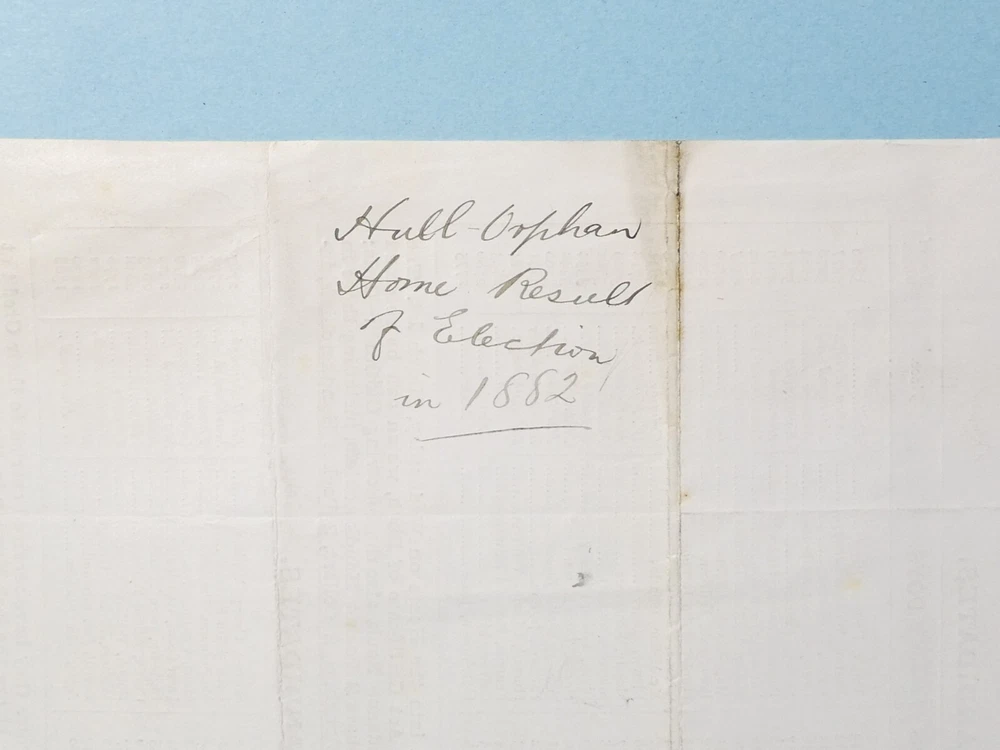 Hull-Orphan
Home Result
of Election
in 1882